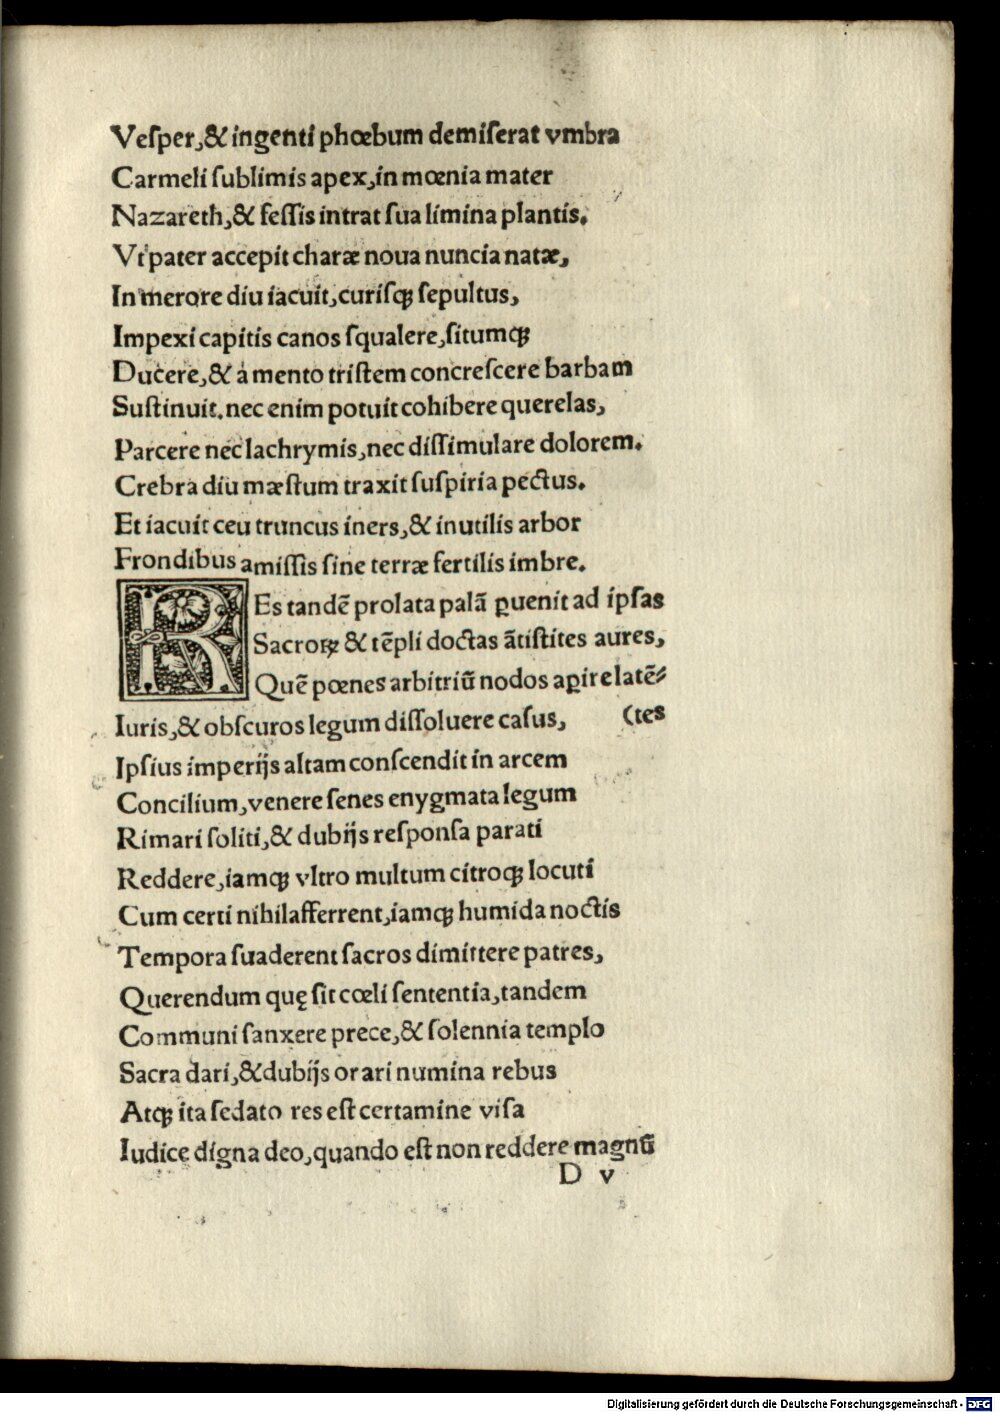 Veſper,& ingenti phœbum demiſerat vmbra
Carmeli ſublimis apex,in mœnia mater
Nazareth,& feſſis intrat ſua limina plantis.
Vt pater accepit charæ noua nuncia natæ,
In merore diu iacuit,curiſqꝫ ſepultus,
Impexi capitis canos ſqualere,ſitumqꝫ
Ducere,& a mento triſtem concreſcere barbam
Suſtinuit.nec enim potuit cohibere querelas,
Parcere nec lachrymis,nec diſſimulare dolorem.
Crebra diu mæſtum traxit ſuſpiria pectus.
Et iacuit ceu truncus iners,& inutilis arbor
Frondibus amiſſis ſine terræ fertilis imbre.
REs tandē prolata palā ꝑuenit ad ipſas
Sacroꝝ & tēpli doctas ātiſtites aures,
Quē pœnes arbitriū nodos aꝑire latē⸗
Iuris,& obſcuros legum diſſoluere caſus, (tes
Ipſius imperijs altam conſcendit in arcem
Concilium,venere ſenes enygmata legum
Rimari ſoliti,& dubijs reſponſa parati
Reddere,iamqꝫ vltro multum citroqꝫ locuti
Cum certi nihil afferrent,iamqꝫ humida noctis
Tempora ſuaderent ſacros dimittere patres,
Querendum quę ſit cœli ſententia,tandem
Communi ſanxere prece,& ſolennia templo
Sacra dari,& dubijs orari numina rebus
Atqꝫ ita ſedato res eſt certamine viſa
Iudice digna deo,quando eſt non reddere magnū
D v
Digitalisierung gefördert durch die Deutsche Forschungsgemeinschaft - DFG